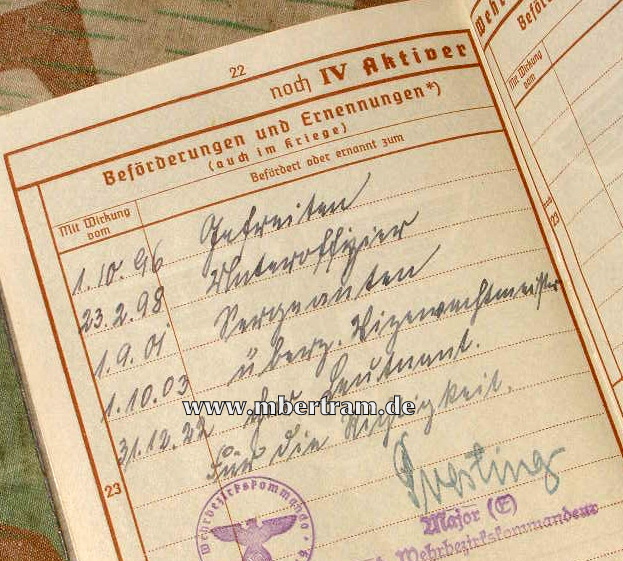 22
noch IV Aktiver
Beförderungen und Ernennungen*)
(auch im Kriege)
Mit Wirkung vom
Befördert oder ernannt zum
1.10.96 Gefreiten
23.2.98 Unteroffizier
1.9.01 Sergeanten
1.10.03 überz. Vizewachtmeister
31.12.22 Leutnant.
Für die Richtigkeit.
www.mbertram.de
23
Major (E)
Wehrbezirkskommandeur
Wehrbezirkskommando
Wehr
Beför
Mit Wirkung vom
23